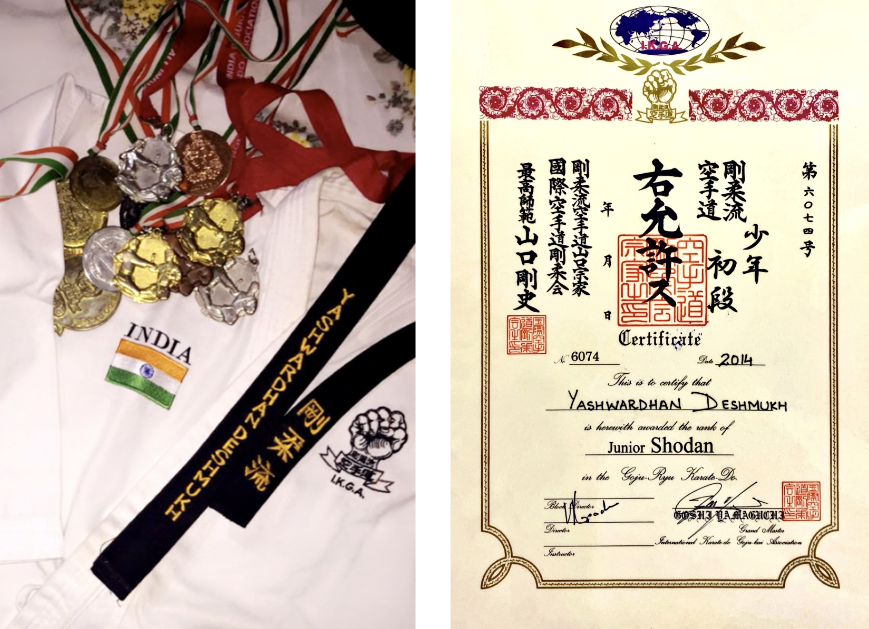 INDIA
YASHWARDHAN DESHMUKH
剛柔流
空手道
I.K.G.A.
I.K.G.A
第六〇七四号
剛柔流
空手道
少年
初段
右允許ス
年 月 日
剛柔流空手道山口宗家
國際空手道剛柔会
最高師範 山口剛史
Certificate
No 6074 Date 2014
This is to certify that
YASHWARDHAN DESHMUKH
is herewith awarded the rank of
Junior Shodan
in the Goju-Ryu Karate-Do.
Block Director
GOSHI YAMAGUCHI
Director
Grand Master
International Karate-do Goju-kai Association
Instructor